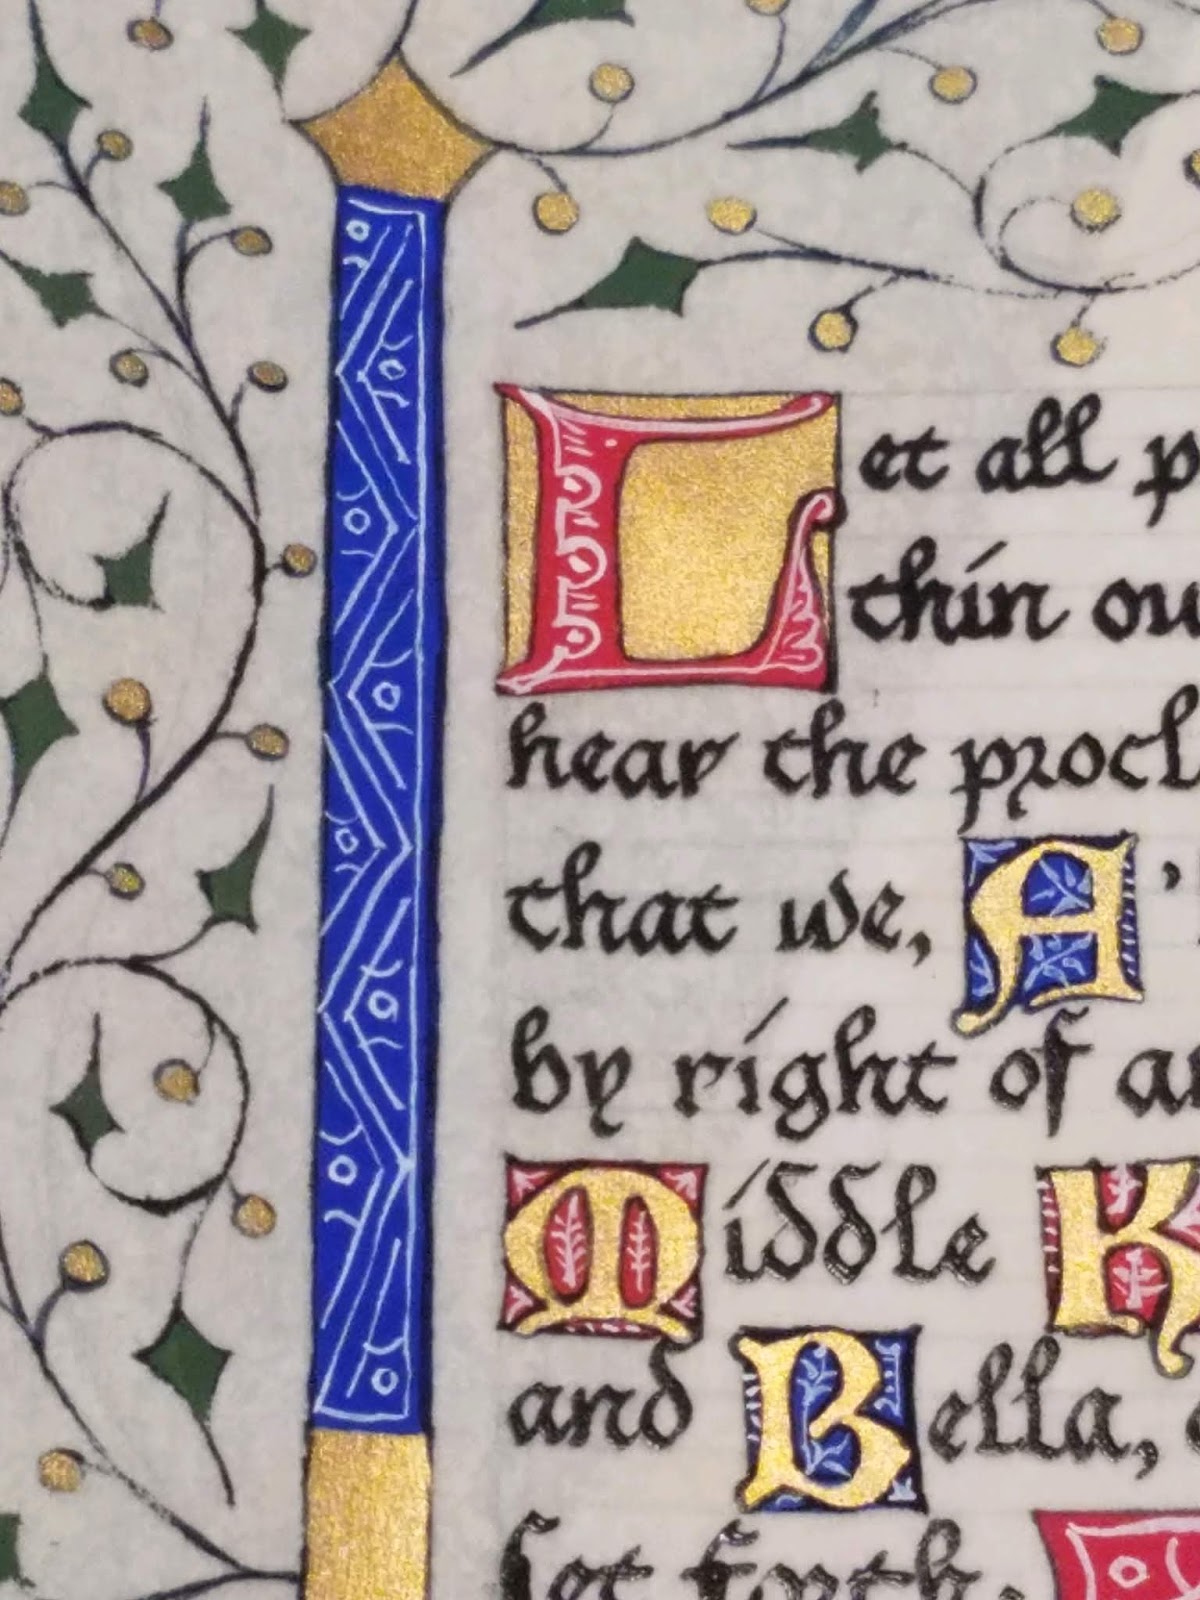 Let all p
thin ou
hear the procl
that we, A'
by right of an
Middle K
and Bella,
set forth.